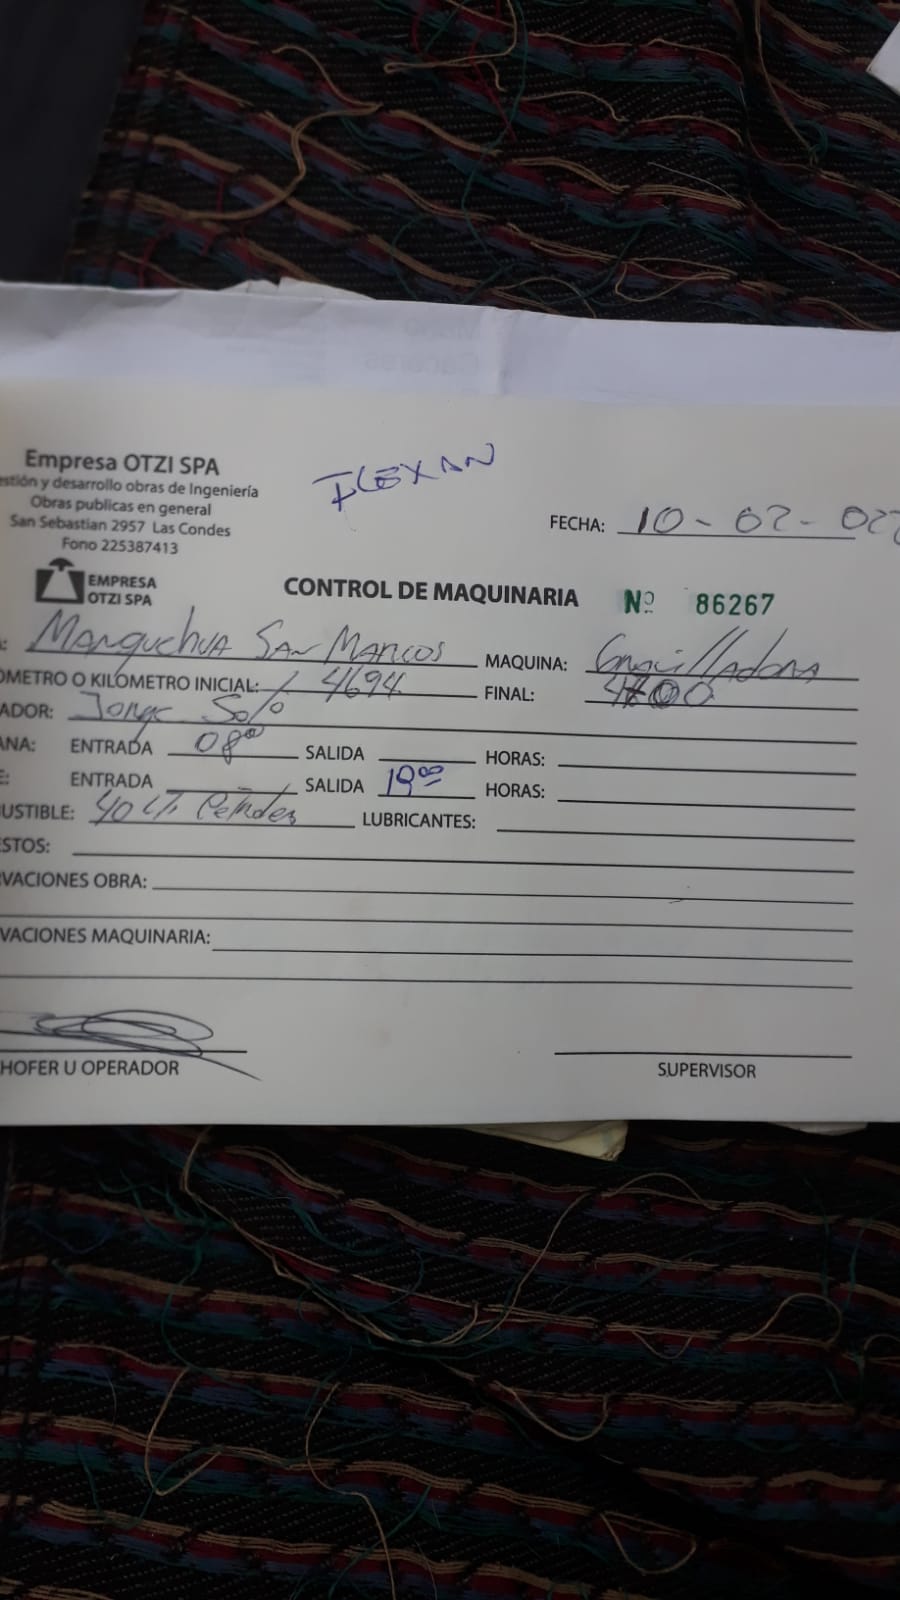 Empresa OTZI SPA
estión y desarrollo obras de Ingeniería
Obras publicas en general
San Sebastian 2957 Las Condes
Fono 225387413
FLEXAN
FECHA: 10-02-022
EMPRESA
OTZI SPA
CONTROL DE MAQUINARIA Nº 86267
: Manquehua San Marcos MAQUINA: Gravilladora
OMETRO O KILOMETRO INICIAL: 4694 FINAL: 4700
ADOR: Jorge Soto
ANA: ENTRADA 08⁰⁰ SALIDA HORAS:
E: ENTRADA SALIDA 19⁰⁰ HORAS:
USTIBLE: 40 LT. LUBRICANTES:
ESTOS:
RVACIONES OBRA:
VACIONES MAQUINARIA:
HOFER U OPERADOR SUPERVISOR